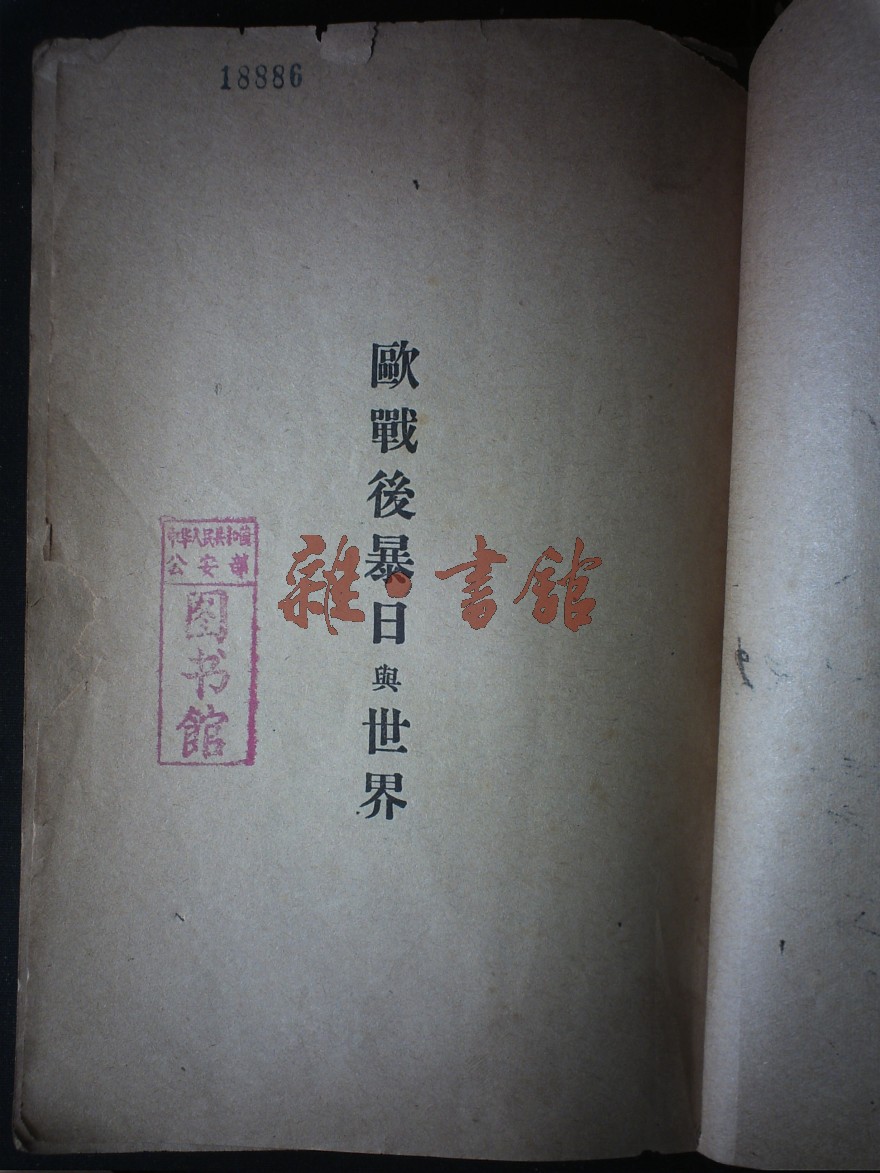 18886
歐戰後暴日與世界
中华人民共和国
公安部
图书馆
雜·書館